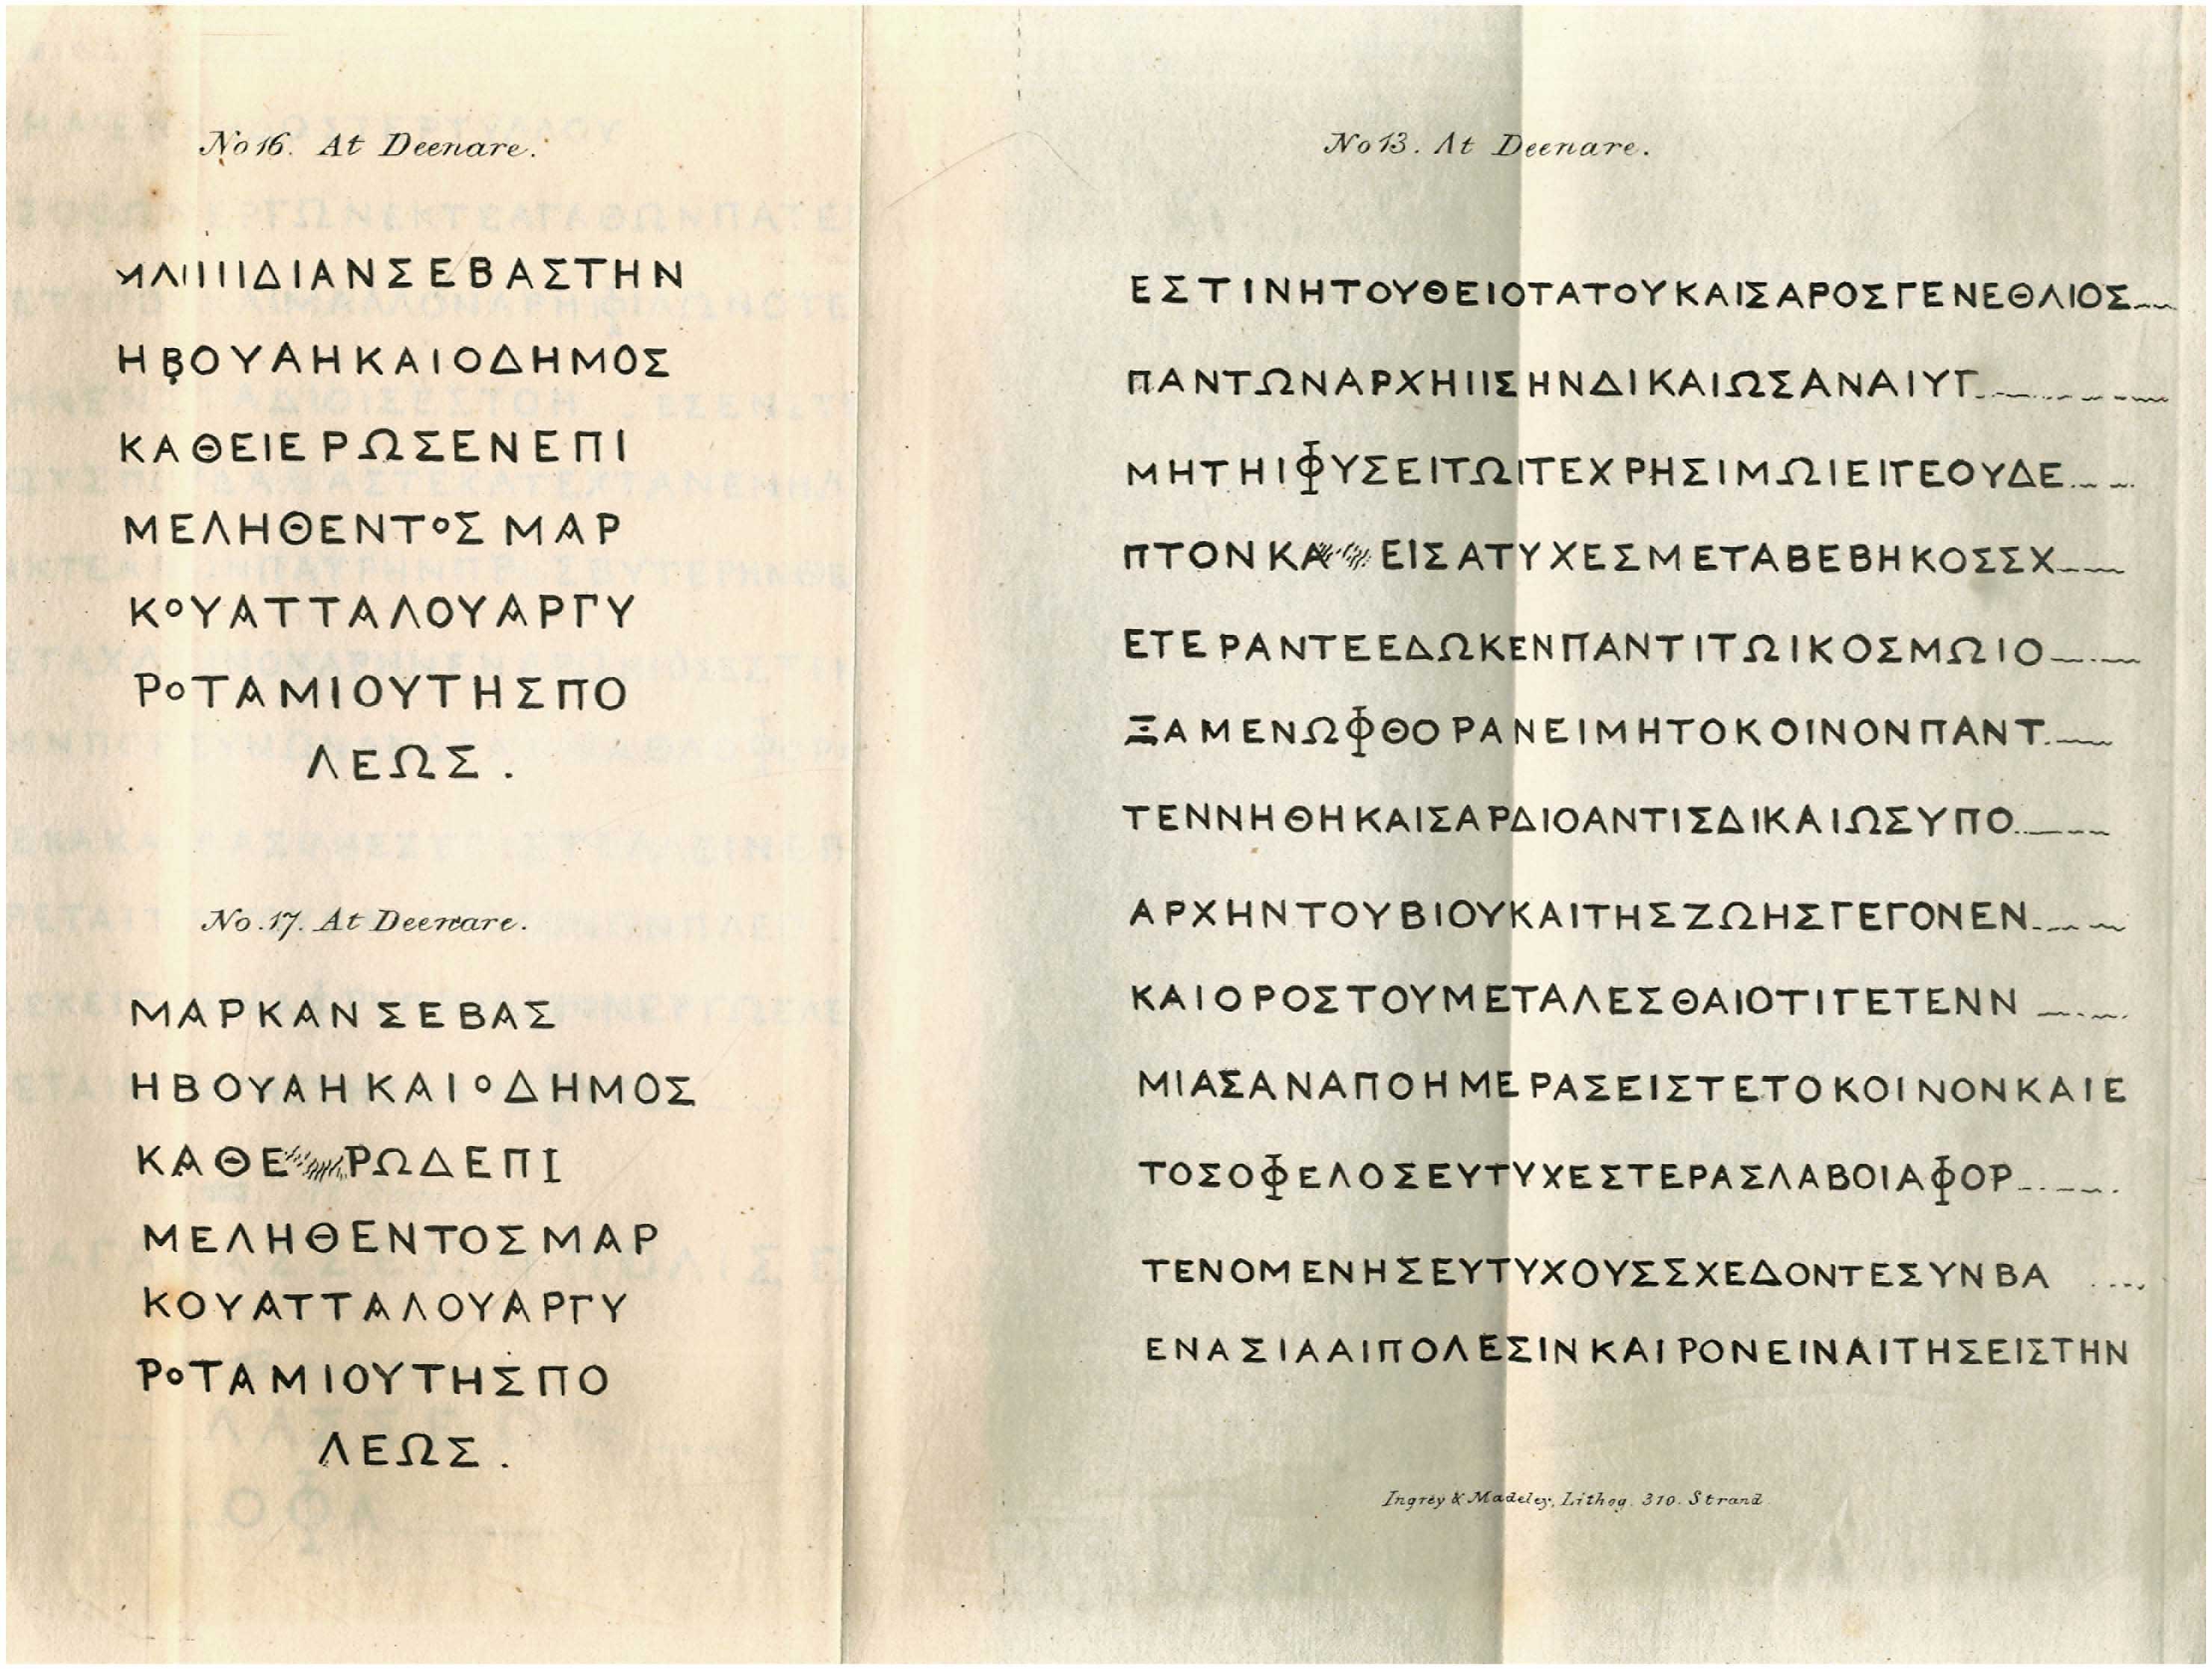 No 16. At Deenare.
ΔΙΑΝΣΕΒΑΣΤΗΝ
ΗΒΟΥΑΗΚΑΙΟΔΗΜΟΣ
ΚΑΘΕΙΕΡΩΣΕΝΕΠΙ
ΜΕΛΗΘΕΝΤΟΣΜΑΡ
ΚΟΥΑΤΤΑΛΟΥΑΡΓΥ
ΡΟΤΑΜΙΟΥΤΗΣΠΟ
ΛΕΩΣ.
No. 17. At Deenare.
ΜΑΡΚΑΝΣΕΒΑΣ
ΗΒΟΥΑΗΚΑΙΟΔΗΜΟΣ
ΚΑΘΕ ΡΩΔΕΠΙ
ΜΕΛΗΘΕΝΤΟΣΜΑΡ
ΚΟΥΑΤΤΑΛΟΥΑΡΓΥ
ΡΟΤΑΜΙΟΥΤΗΣΠΟ
ΛΕΩΣ.
No 13. At Deenare.
ΕΣΤΙΝΗΤΟΥΘΕΙΟΤΑΤΟΥΚΑΙΣΑΡΟΣΓΕΝΕΘΛΙΟΣ
ΠΑΝΤΩΝΑΡΧΗΙΙΣΗΝΔΙΚΑΙΩΣΑΝΑΙΥΓ
ΜΗΤΗΙΦΥΣΕΙΤΩΙΤΕΧΡΗΣΙΜΩΙΕΙΓΕΟΥΔΕ
ΠΤΟΝΚΑ ΕΙΣΑΤΥΧΕΣΜΕΤΑΒΕΒΗΚΟΣΣΧ
ΕΤΕΡΑΝΤΕΕΔΩΚΕΝΠΑΝΤΙΤΩΙΚΟΣΜΩΙΟ
ΞΑΜΕΝΩΦΘΟΡΑΝΕΙΜΗΤΟΚΟΙΝΟΝΠΑΝΤ
ΤΕΝΝΗΘΗΚΑΙΣΑΡΔΙΟΑΝΤΙΣΔΙΚΑΙΩΣΥΠΟ
ΑΡΧΗΝΤΟΥΒΙΟΥΚΑΙΤΗΣΖΩΗΣΓΕΓΟΝΕΝ
ΚΑΙΟΡΟΣΤΟΥΜΕΤΑΛΕΣΘΑΙΟΤΙΓΕΤΕΝΝ
ΜΙΑΣΑΝΑΠΟΗΜΕΡΑΣΕΙΣΤΕΤΟΚΟΙΝΟΝΚΑΙΕ
ΤΟΣΟΦΕΛΟΣΕΥΤΥΧΕΣΤΕΡΑΣΛΑΒΟΙΑΦΟΡ
ΤΕΝΟΜΕΝΗΣΕΥΤΥΧΟΥΣΣΧΕΔΟΝΤΕΣΥΝΒΑ
ΕΝΑΣΙΑΑΙΠΟΛΕΣΙΝΚΑΙΡΟΝΕΙΝΑΙΤΗΣΕΙΣΤΗΝ
Ingrey & Madeley, Lithog. 310. Strand